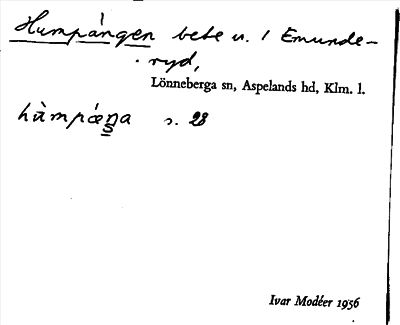 Humpängen bebe u. / Emunde-
ryd,
Lönneberga sn, Aspelands hd, Klm. l.
hùmpæŋa s. 28
Ivar Modéer 1956